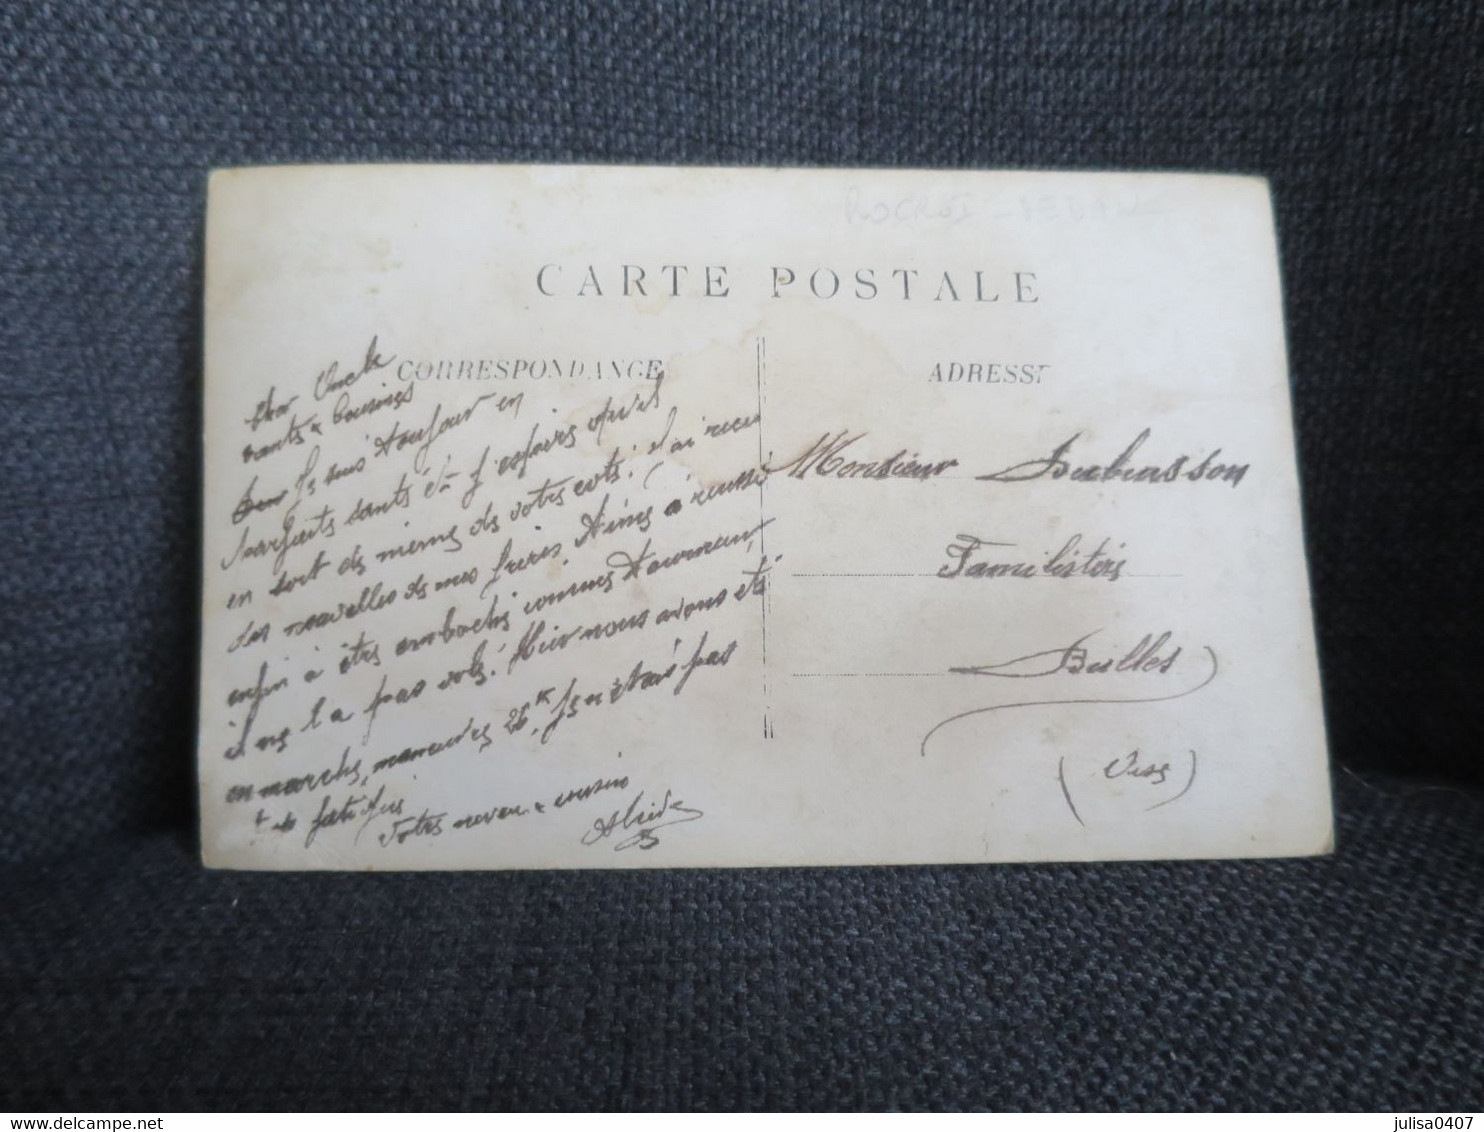 ROCROI - SEDAN
CARTE POSTALE
CORRESPONDANCE
ADRESSE
Cher Oncle
tante & Cousines
Je suis toujour en
parfaite santé & j'espère qu'il
en soit de même de votre coté. J'ai recu
des nouvelles de mes frères. Aimé a reussi
enfin à être embaché comme tourneur,
il ne l'a pas volé. Hier nous avons été
en marche manœuvres 26 K. Je n'étais pas
fatigué
Votre neveu & cousin
Monsieur Dubuisson
Familistère
Bulles
(Oise)
julisa0407